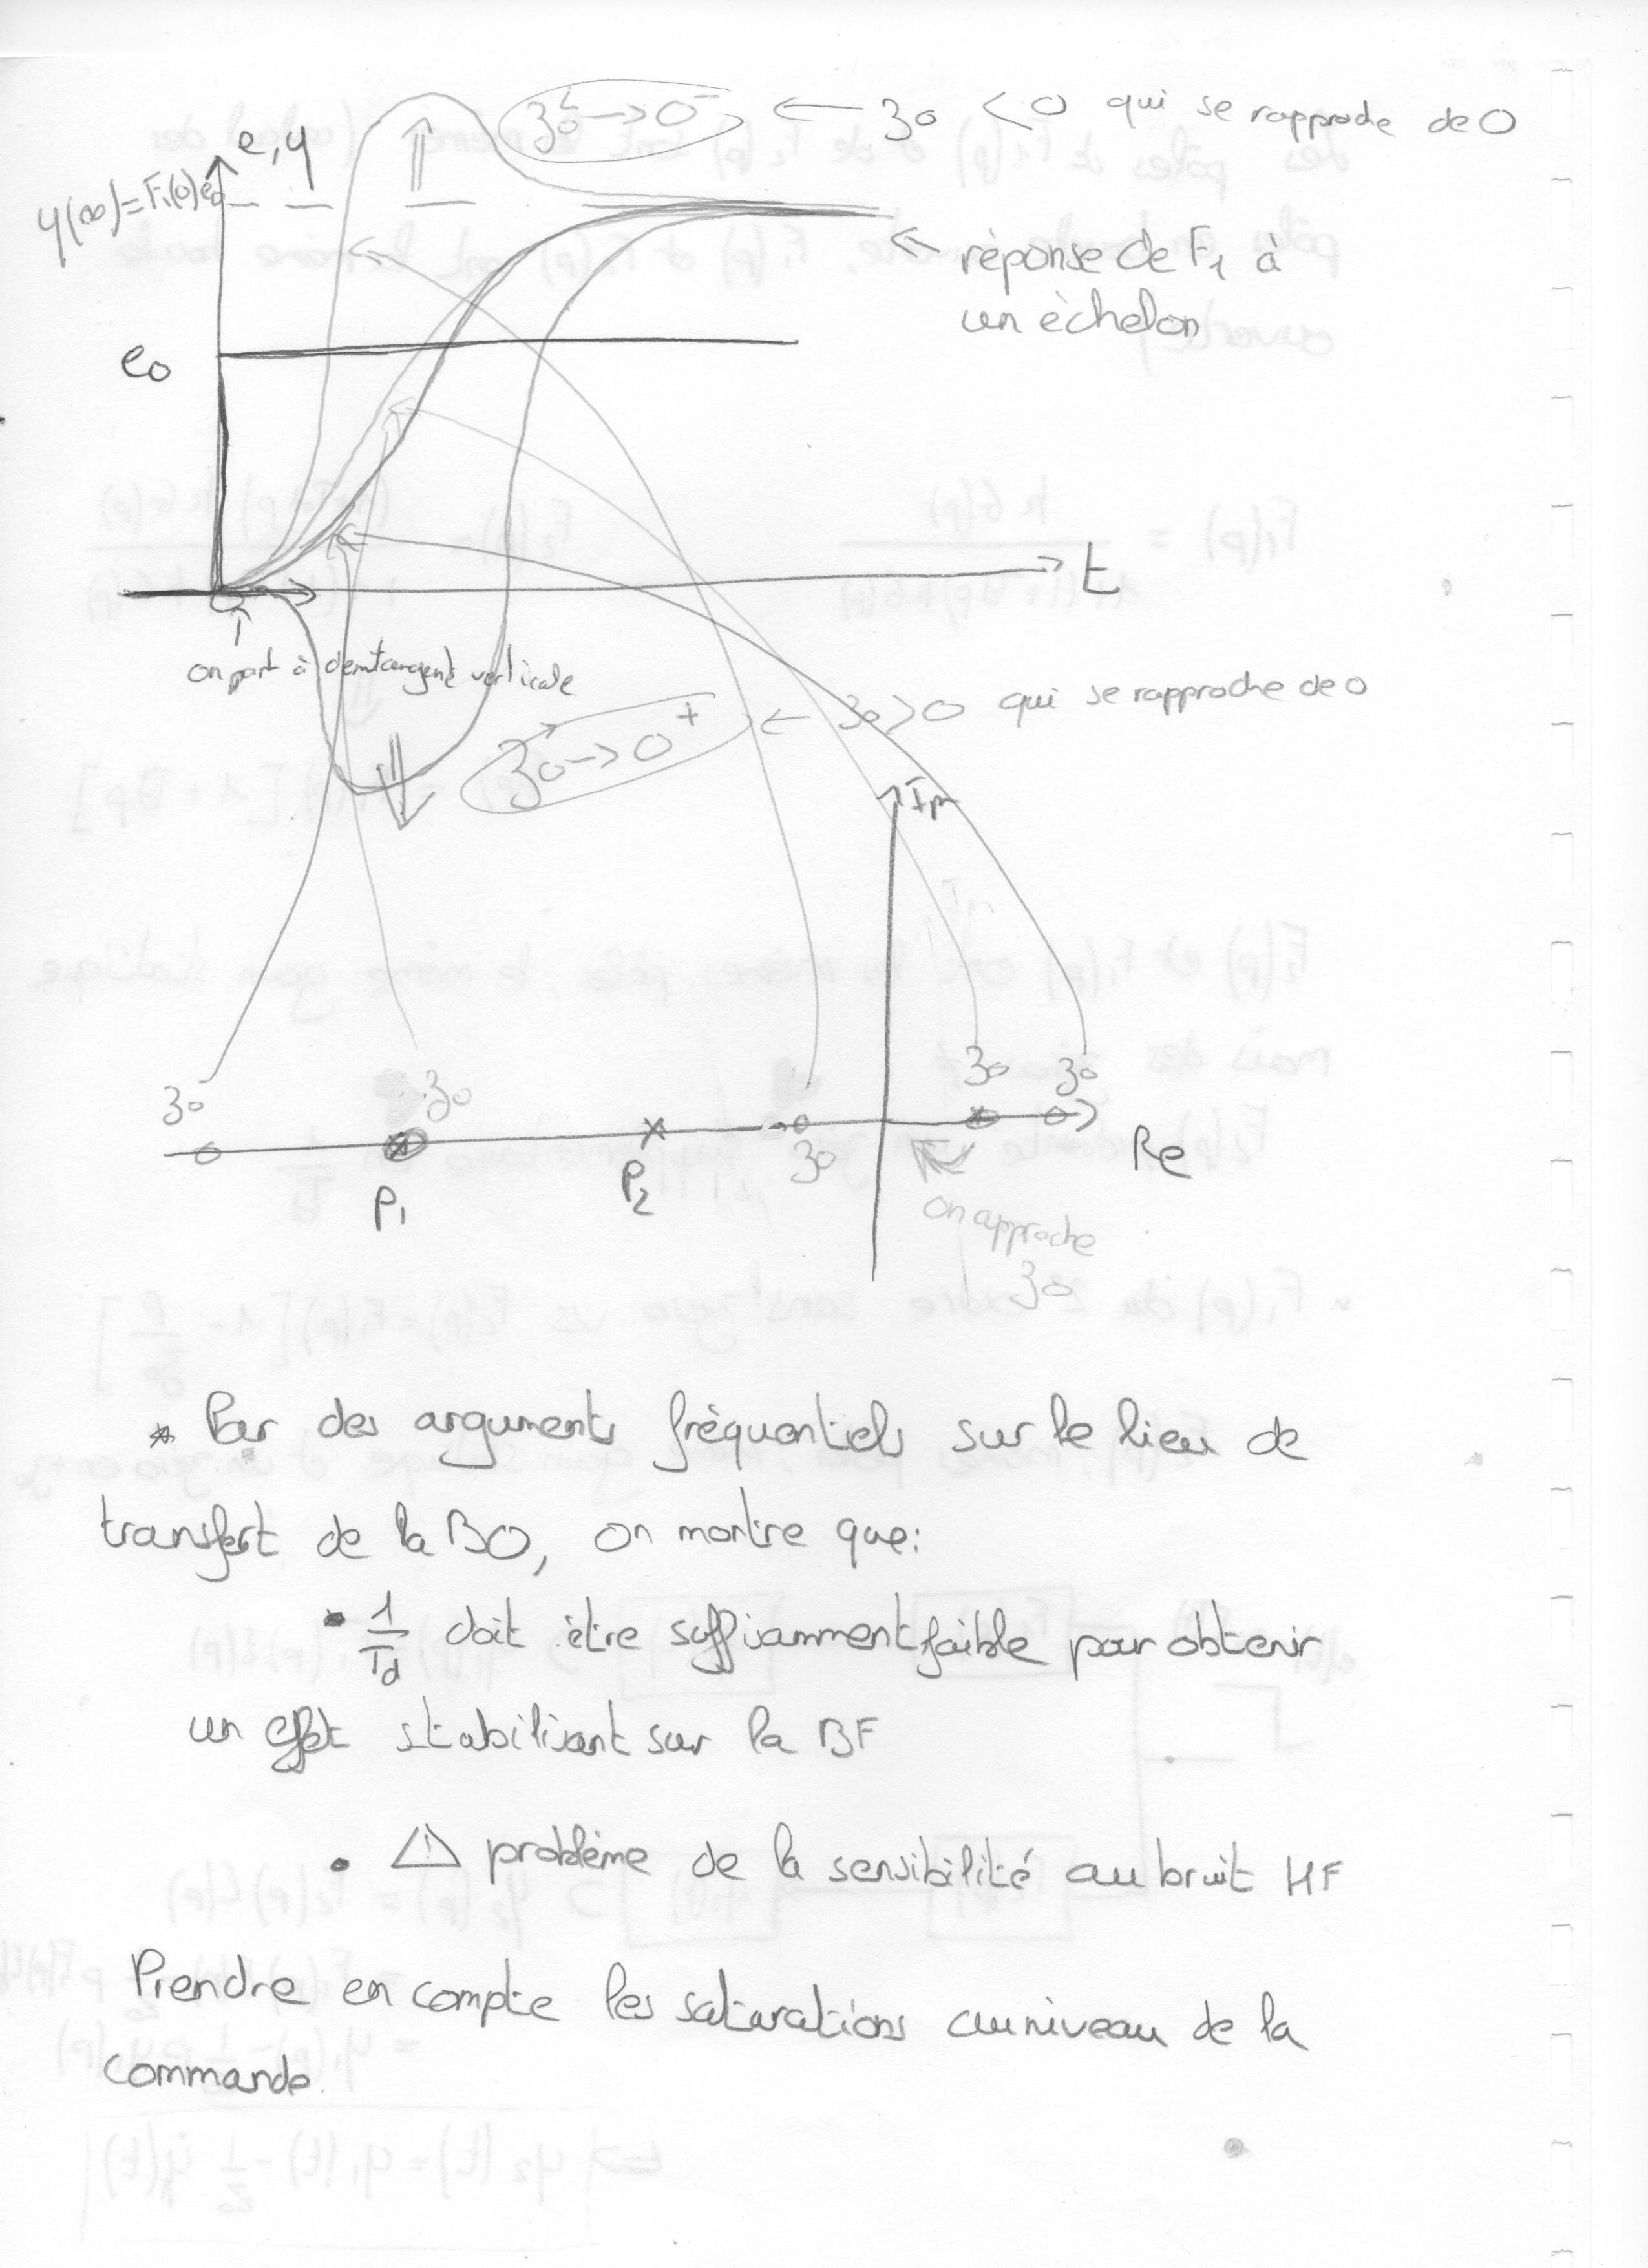 z₀ → 0⁻ ← z₀ < 0 qui se rapproche de 0
e, y
y(∞) = F₁(0)e₀
← réponse de F₁ à
un échelon
e₀
t
on part à demi tangente verticale
z₀ → 0⁺ ← z₀ > 0 qui se rapproche de 0
Im
z₀ z₀ z₀ z₀
z₀
P₁ P₂ Re
on approche
z₀
* Par des arguments fréquentiels sur le lieu de
transfert de la BO, on montre que:
• 1/Td doit être suffisamment faible pour obtenir
un effet stabilisant sur la BF
• ⚠ problème de la sensibilité au bruit HF
Prendre en compte les saturations au niveau de la
commande.